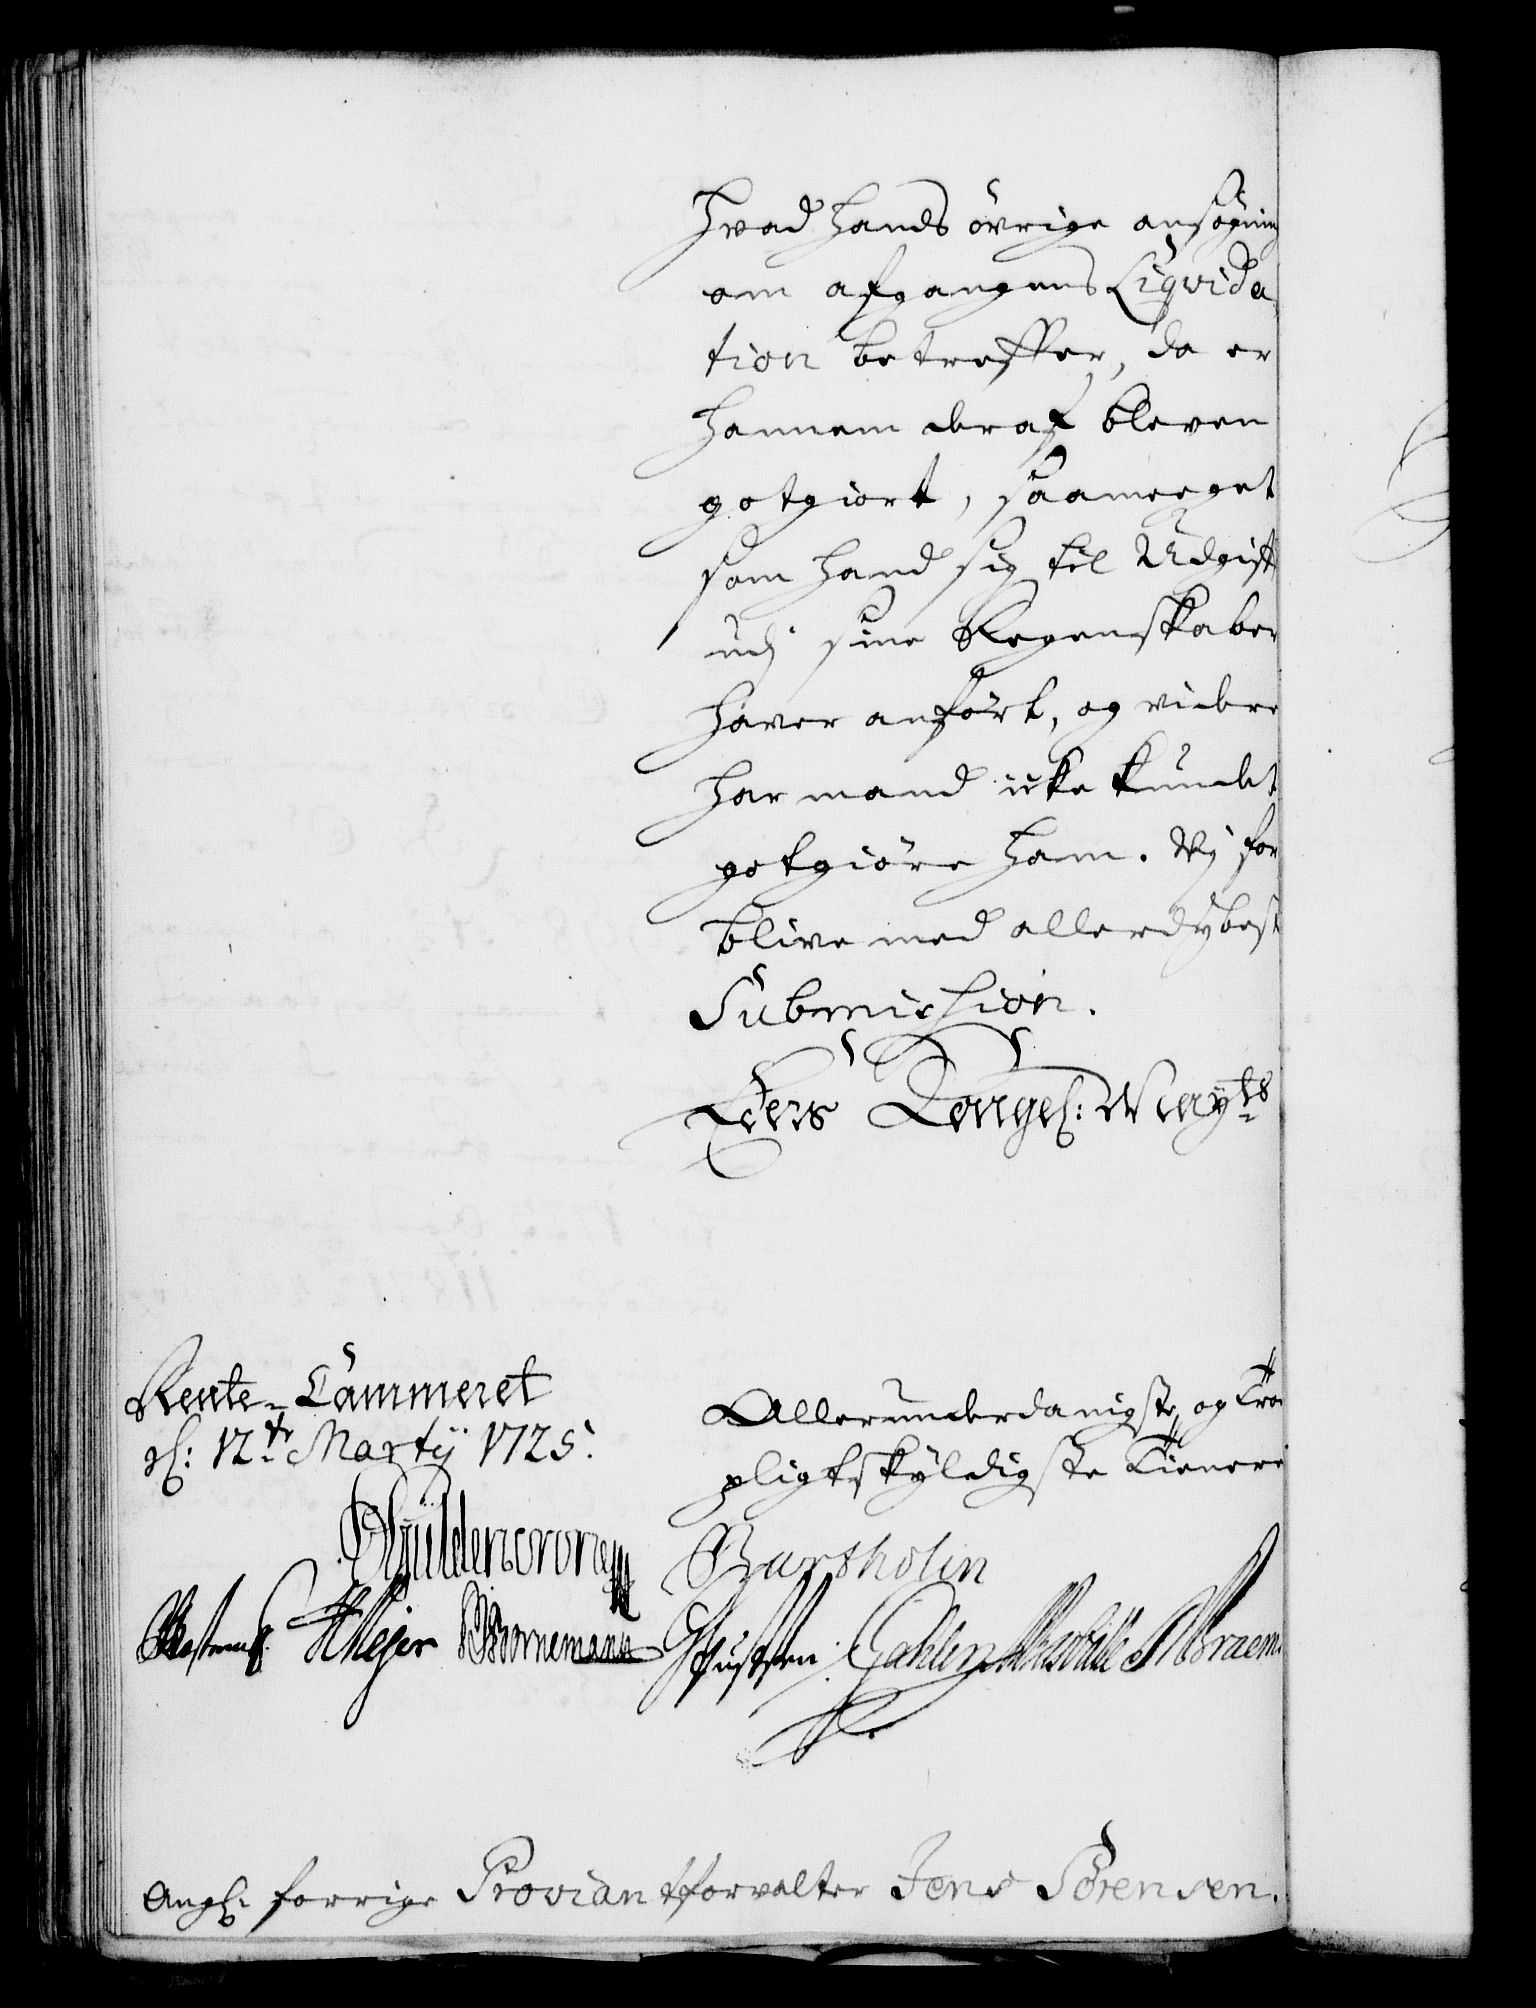 Hvad hands övrige ansögning
om afgangens Liqvida
tion betreffer, da er
hannem deraf bleven
gotgiort, saameeget
som hand sig til Udgift
udj sine Regenskaber
haver anfört, og videre
har mand icke kundet
gotgiöre ham. Vj for
blive med allerdybest
Submission.
Eders Kongel: Mayts
Rente-Cammeret
d: 12te Martij 1725.
Allerunderdanigste og Troe
pligtskyldigste Tienere
Güldencrone
Bartholin
HMejer Bornemann Gahlen Braem.
Angl: forrige Proviantforvalter Jens Sörensen.